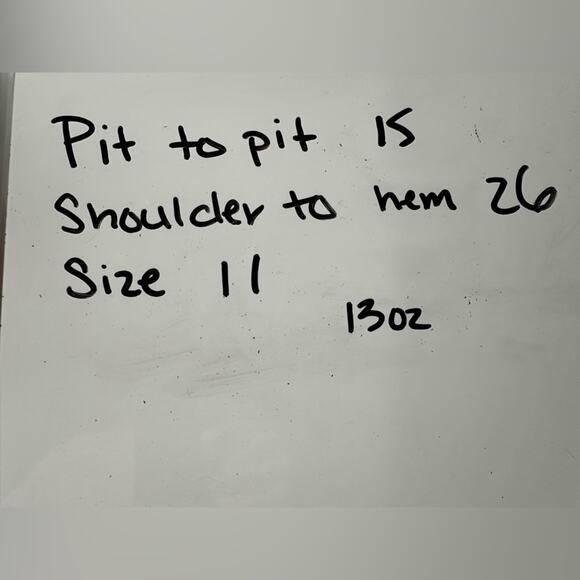 Pit to pit 15
Shoulder to hem 26
Size 11
13oz